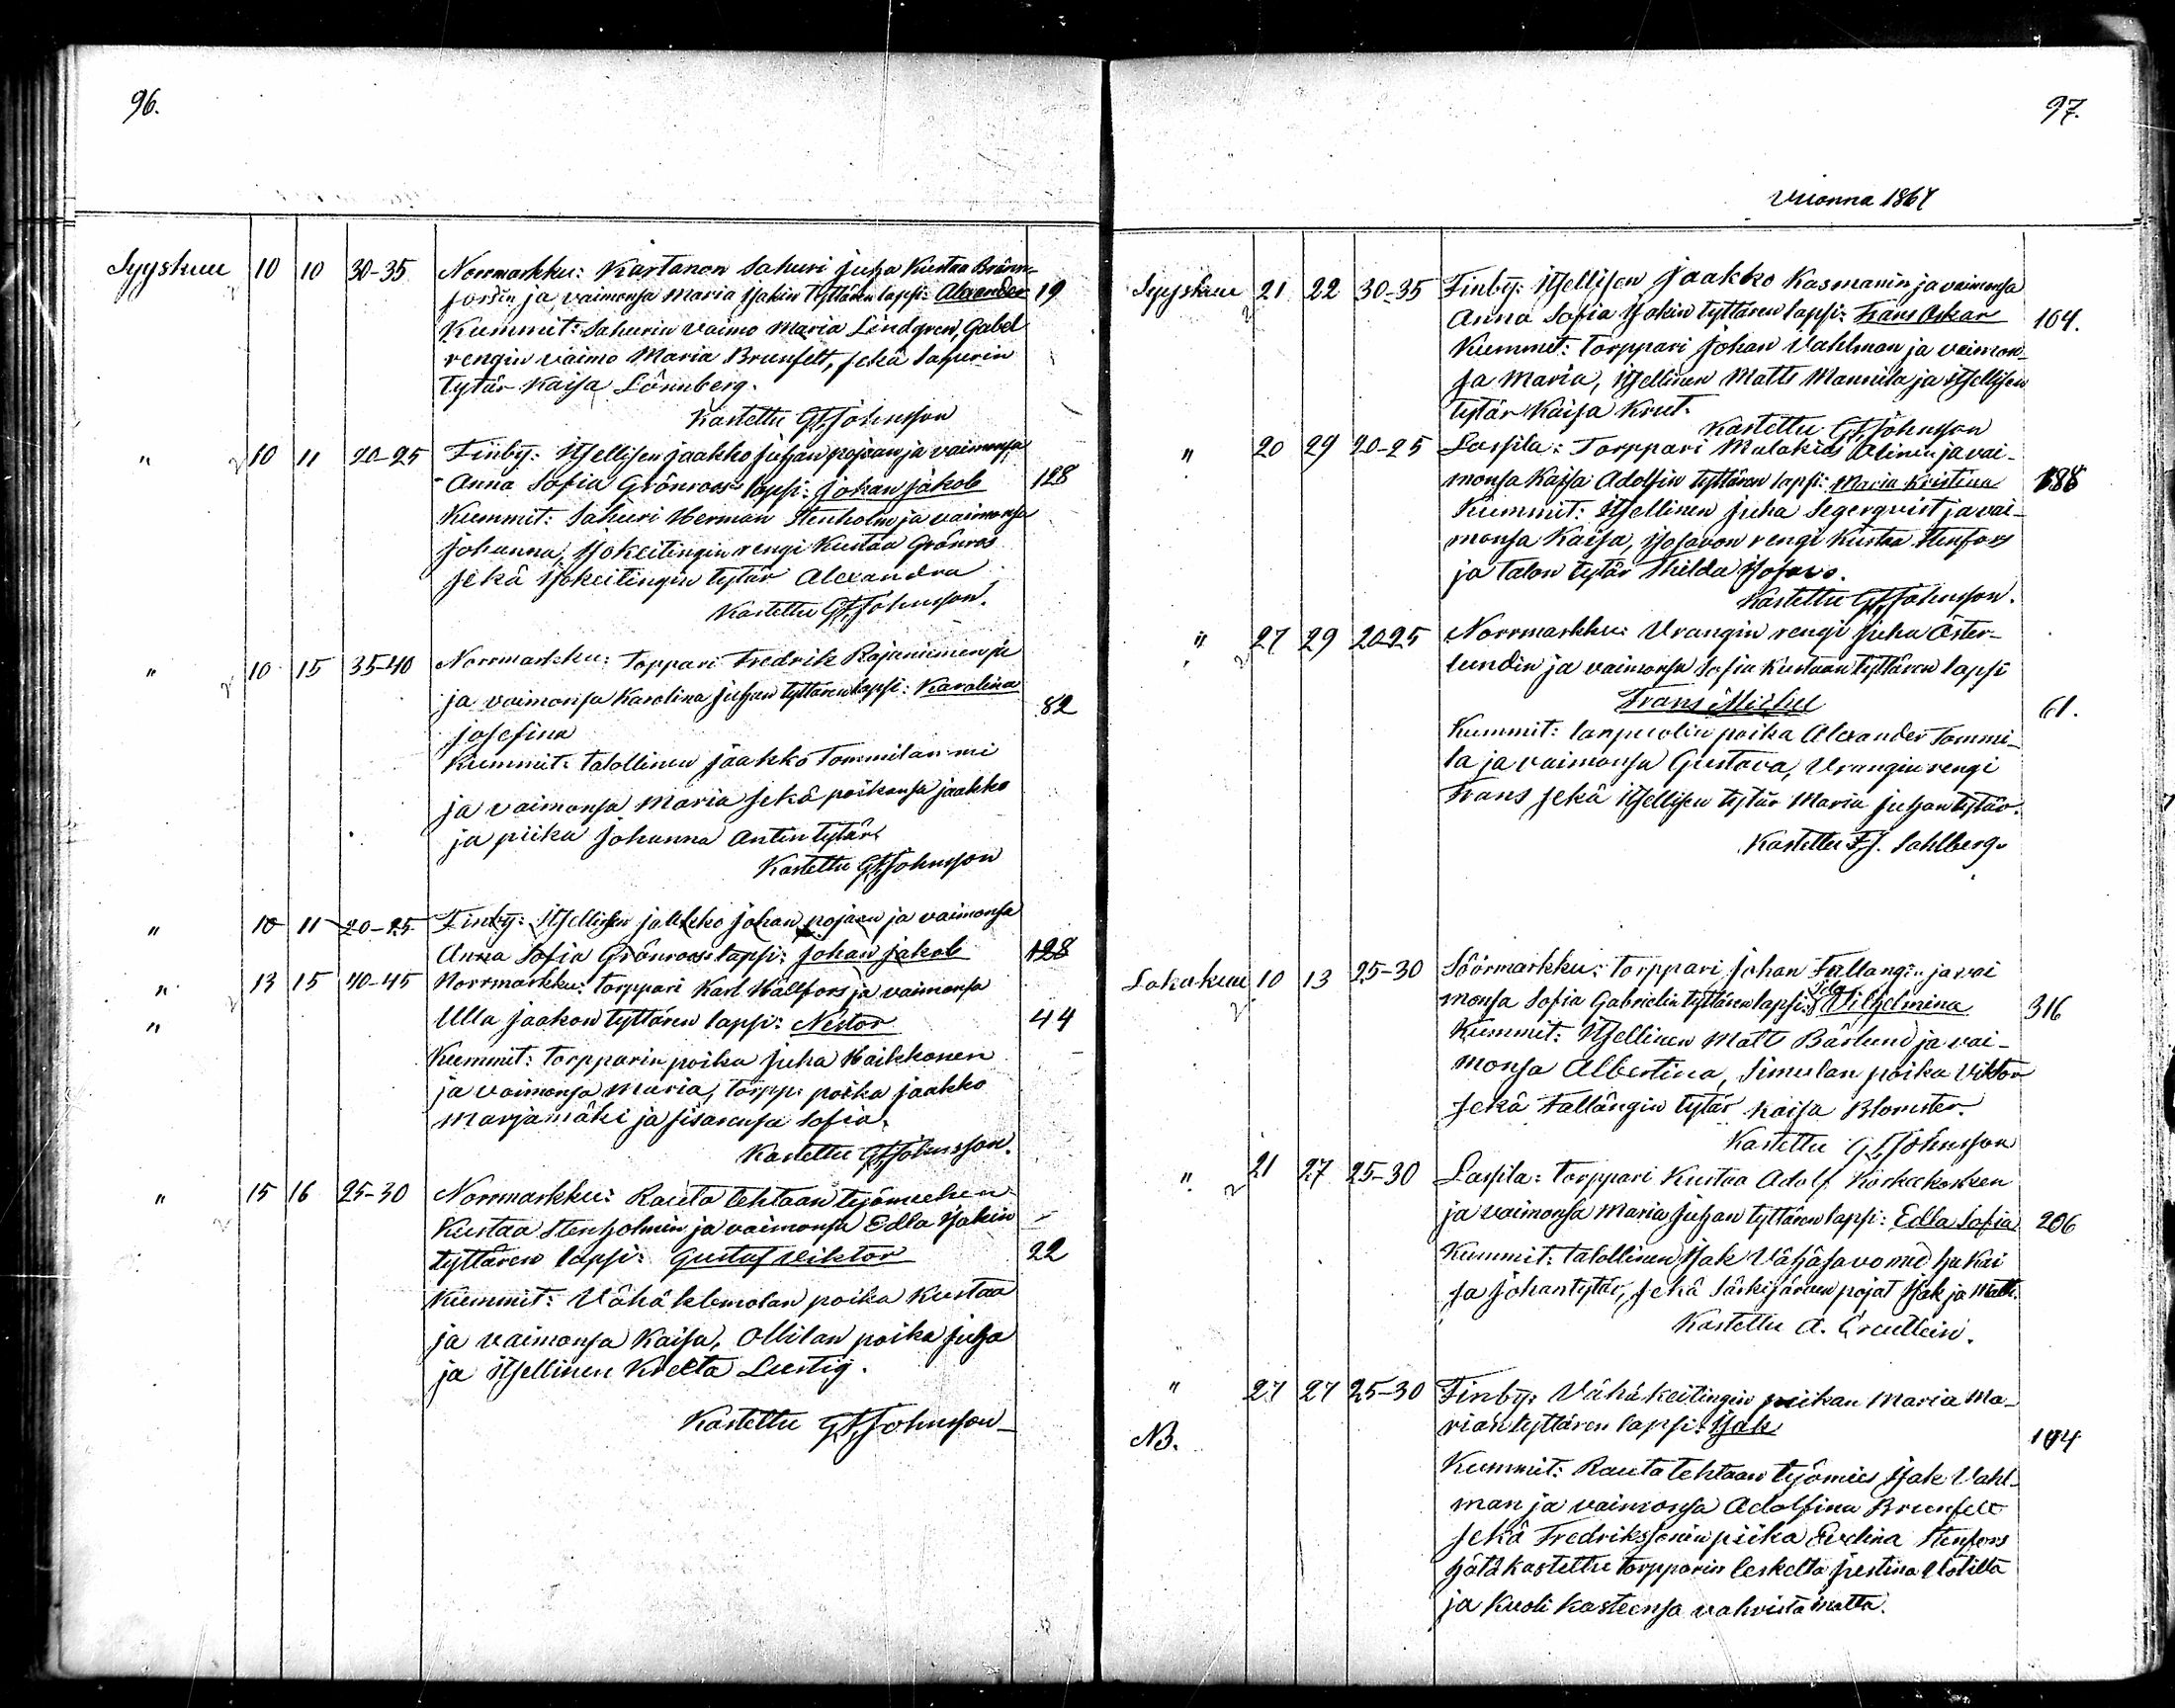 96.
Syyskuu 10 10 30-35 Norrmarkku: Kartanon Sahuri Juha Kustaa Bränn-
forsin ja vaimonsa Maria Isakin Tyttären lapsi: Alexander 19
Kummit: Sahurin vaimo Maria Lindgren, Gabel
rengin vaimo Maria Brunfelt, sekä Sahurin
tytär Kaisa Lönnberg.
Kastettu G.F. Johnsson
" 10 11 20-25 Finby: Itsellisen Jaakko Juhan pojan ja vaimonsa
Anna Sofia Grönroos lapsi: Johan Jakob 128
Kummit: Sahuri Herman Stenholm ja vaimonsa
Johanna, Isokeitingin rengi Kustaa Grönroos
sekä Isokeitingin tytär Alexandra
Kastettu G.F. Johnsson.
" 10 15 35-40 Norrmarkku: Toppari Fredrik Rajaniemen ja
ja vaimonsa Karolina Juhan tyttären lapsi: Karolina
Josefina 82
Kummit: talollinen Jaakko Tommilanmi
ja vaimonsa Maria sekä poikansa Jaakko
ja piika Johanna Antin tytär.
Kastettu G.F. Johnsson
" 10 11 20-25 Finby: Itsellisen Jaakko Johan pojan ja vaimonsa
Anna Sofia Grönroos lapsi: Johan Jakob 128
" 13 15 40-45 Norrmarkku: torppari Karl Hällfors ja vaimonsa
" Ulla Jaakon tyttären lapsi: Nestor 44
Kummit: torpparin poika Juha Haikkonen
ja vaimonsa Maria, torpp. poika Jaakko
Marjamäki ja sisarensa Sofia.
Kastettu G.F. Johnsson.
" 15 16 25-30 Norrmarkku: Rauta tehtaan työmiehen
Kustaa Stenholmin ja vaimonsa Edla Isakin
tyttären lapsi: Gustaf Viktor 22
Kummit: Vähä klemolan poika Kustaa
ja vaimonsa Kaisa, Ollilan poika Juha
ja Itsellinen Kreeta Lustig.
Kastettu G.F. Johnsson
97.
Vuonna 1867
Syyskuu 21 22 30-35 Finby: Itsellisen Jaakko Kasmanin ja vaimonsa
Anna Sofia Isakin tyttären lapsi: Frans Oskar 104.
Kummit: Torppari Johan Vahlman ja vaimon-
sa Maria, Itsellinen Matts Mannila ja Itsellisen
tytär Kaisa Krut.
Kastettu G.F. Johnsson
" 20 29 20-25 Lassila: Torppari Malakias Alinen ja vai-
monsa Kaisa Adolfin tyttären lapsi: Maria Kristina 188
Kummit: Itsellinen Juha Segerqvist ja vai-
monsa Kaisa, Isosavon rengi Kustaa Stenfors
ja talon tytär Hilda Isosavo.
Kastettu G.F. Johnsson.
" 27 29 20-25 Norrmarkku: Vrangin rengi Juha Öster-
lundin ja vaimonsa Sofia Kustaan tyttären lapsi
Frans Mickel 61.
Kummit: lanpuolin poika Alexander Tommi-
la ja vaimonsa Gustava, Vrangin rengi
Frans sekä Itsellisen tytär Maria Juhan tytär.
Kastettu F.J. Sahlberg.
Lokakuu 10 13 25-30 Söörmarkku: Torppari Johan Fallängin ja vai
monsa Sofia Gabrielin tyttären lapsi: Ida Vilhelmina 316
Kummit: Itsellinen Matts Bärlund ja vai-
monsa Albertina, Simulan poika Viktor
sekä Fallängin tytär Kaisa Blomster.
Kastettu G.F. Johnsson
" 21 27 25-30 Lassila: torppari Kustaa Adolf Korkeakosken
ja vaimonsa Maria Juhan tyttären lapsi: Edla Sofia 206
Kummit: talollinen Isak Vähäsavo ja Kai
sa Johantytär, sekä Särkijärven pojat Isak ja Matts.
Kastettu A.
" 27 27 25-30 Finby: Vähäkeitingin piikan Maria Ma-
riantyttären lapsi: Isak
NB. 104
Kummit: Rauta tehtaan työmies Isak Vahl-
man ja vaimonsa Adolfina Brunfelt
sekä Fredrikssonin piika Evelina Stenfors
hätäkastettu torpparin leskeltä Justina Uotilta
ja kuoli kasteensa vahvistamatta.